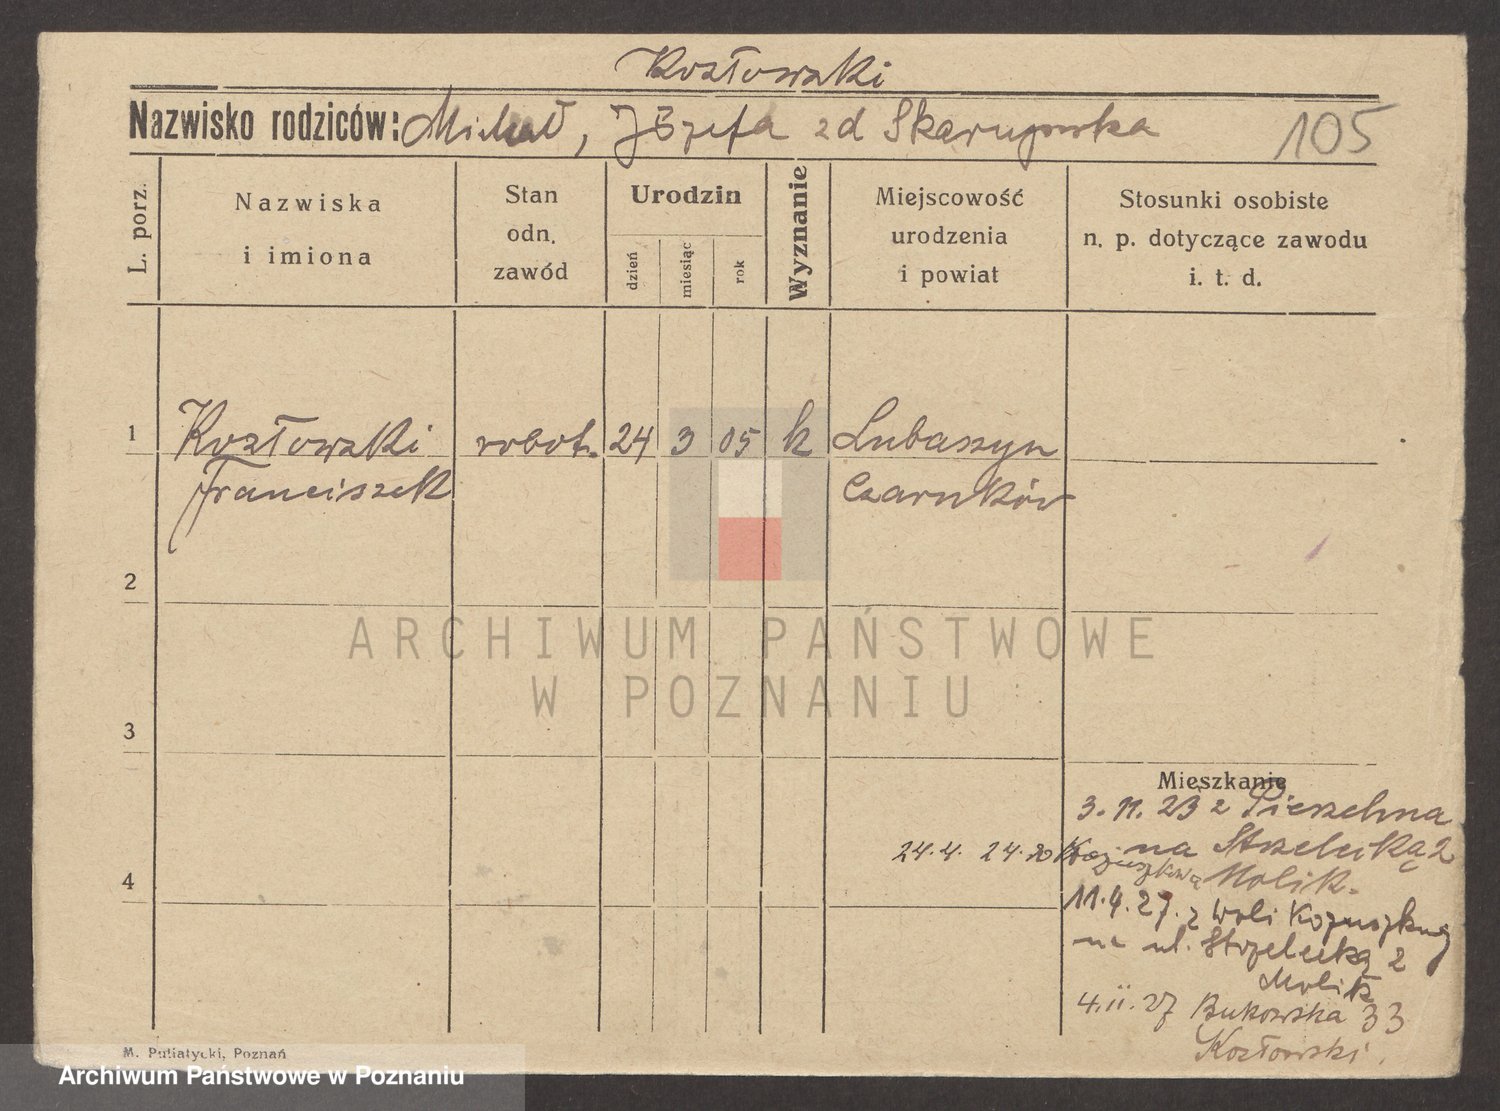 Kozłowski
Nazwisko rodziców: Michał, Józefa zd Skarupowska
105
L. porz.
Nazwiska
i imiona
Stan
odn.
zawód
Urodzin
dzień
miesiąc
rok
Wyznanie
Miejscowość
urodzenia
i powiat
Stosunki osobiste
n. p. dotyczące zawodu
i. t. d.
1
Kozłowski robot. 24 3 05 k Lubaszyn
Franciszek Czarnków
2
ARCHIWUM PAŃSTWOWE
W POZNANIU
3
Mieszkanie
3. 11. 23 z
na Strzelecką 2
24. 4. 24
Molik.
4
11. 4. 27. z Woli
na ul. Strzelecką 2
Molik
4. 11. 27 Bukowska 33
Kozłowski.
M. Putiatycki, Poznań
Archiwum Państwowe w Poznaniu